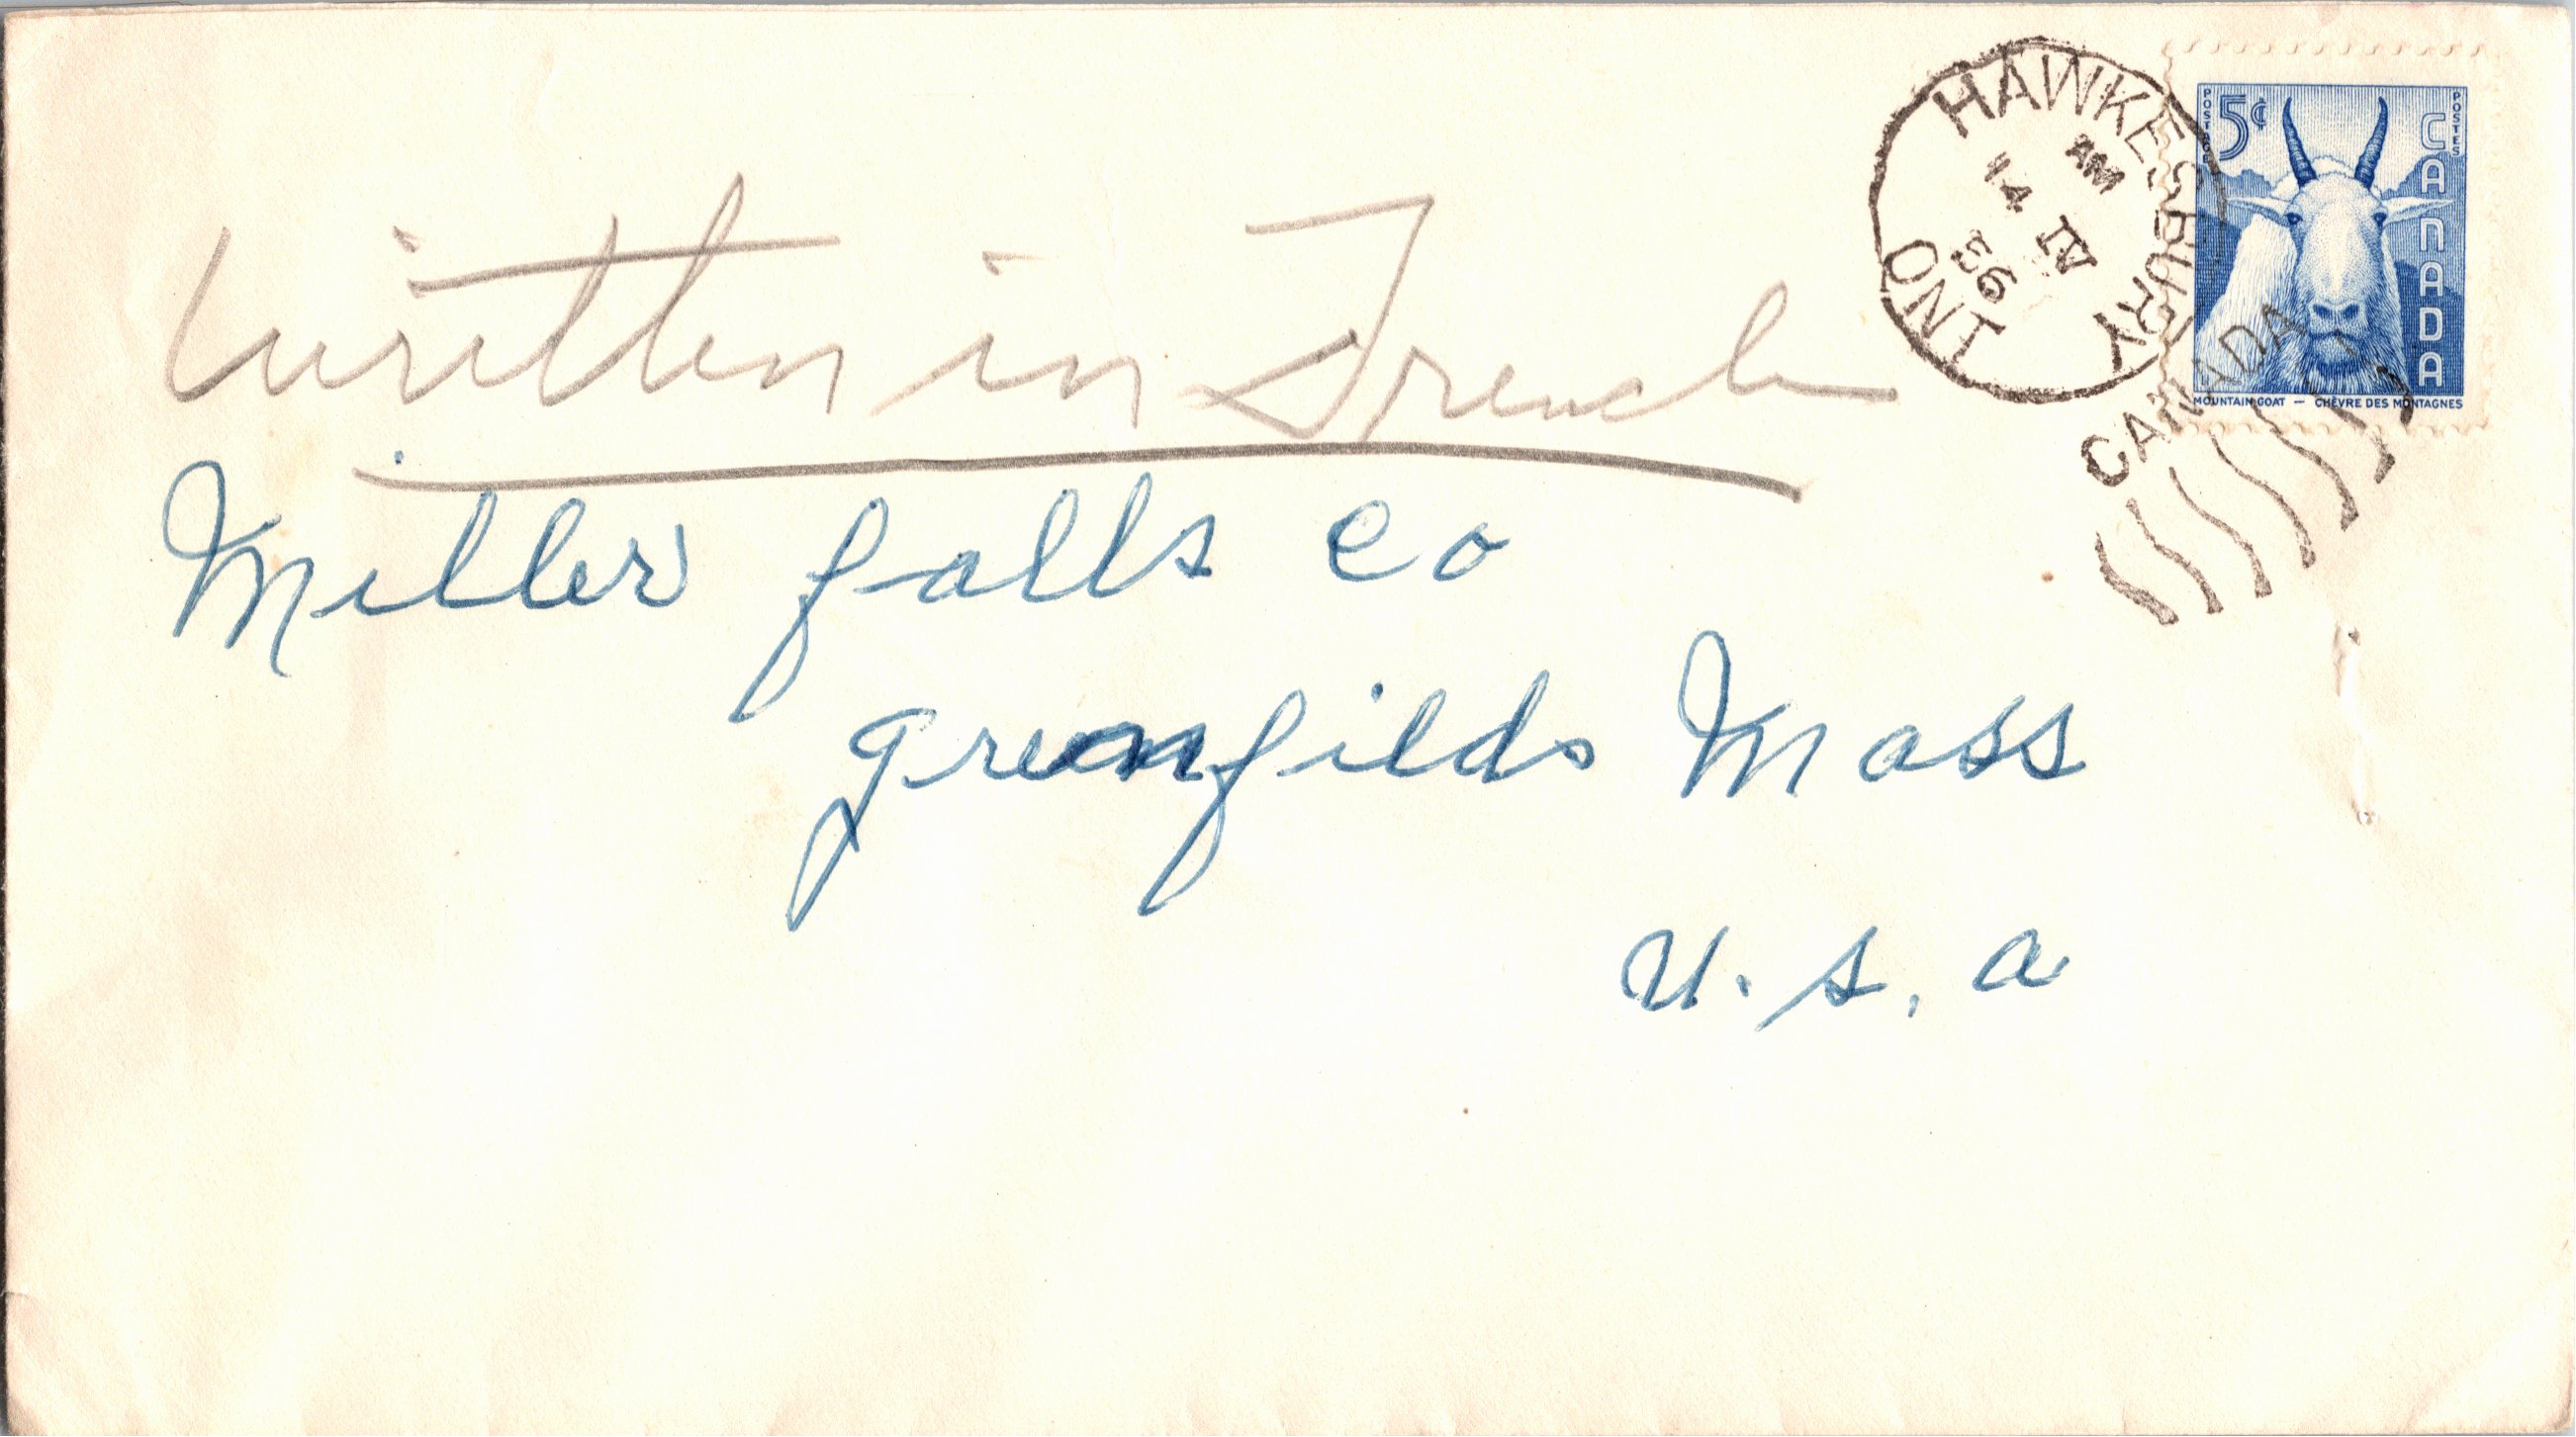 HAWKESBURY
AM
14 IV
56
ONT
CANADA
POSTAGE 5¢ POSTES
CANADA
MOUNTAIN GOAT — CHÈVRE DES MONTAGNES
Written in French
Miller falls Co
greenfilds Mass
U.S.a